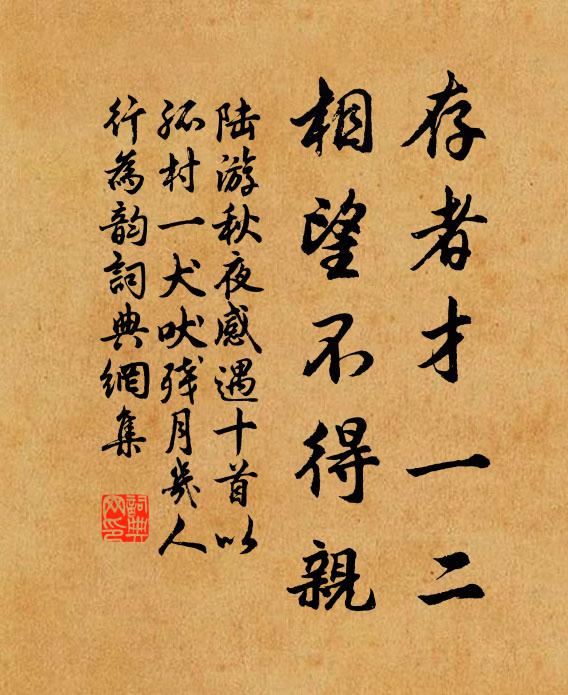 存者才一二
相望不得親
陆游秋夜感遇十首以
孤村一犬吠残月几人
行為韵詞典網集
詞典
网印